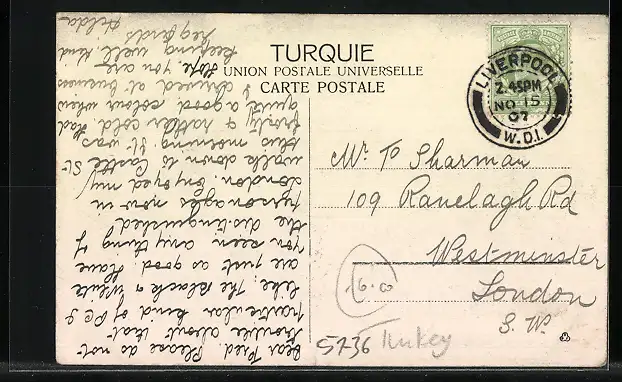 TURQUIE
UNION POSTALE UNIVERSELLE
CARTE POSTALE
LIVERPOOL
2.45PM
NO 15
07
W.D.I.
Mr T Sharman
109 Ranelagh Rd
Westminster
London
S. W.
16.0
5736 Turkey
Dear Fred Please do not
trouble about that
particular kind of PC's
like. The Black & White
are just as good. Have
you seen any thing of
the distinguished
personages now in
London. Enjoyed my
walk down to Castle St
this morning it was
frosty & rather cold. Had
quite a good colour when
I arrived at business
Hope you are
keeping well kind
regards
Hilda